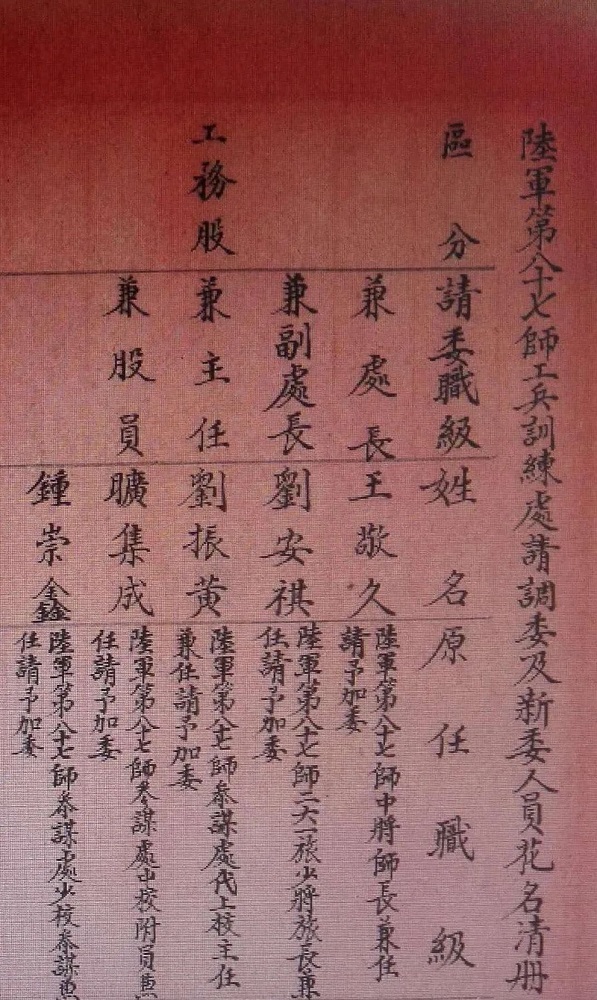 陸軍第八十七師工兵訓練處請調委及新委人員花名清册
區分 請委職級 姓名 原任職級
兼處長 王敬久 陸軍第八十七師中將師長兼任
請予加委
兼副處長 劉安祺 陸軍第八十七師二六一旅少將旅長兼
任請予加委
工務股 兼主任 劉振黃 陸軍第八十七師叅謀處代上校主任
兼任請予加委
兼股員 曠集成 陸軍第八十七師叅謀處中校附員兼
任請予加委
鍾崇鑫 陸軍第八十七師叅謀處少校叅謀兼
任請予加委